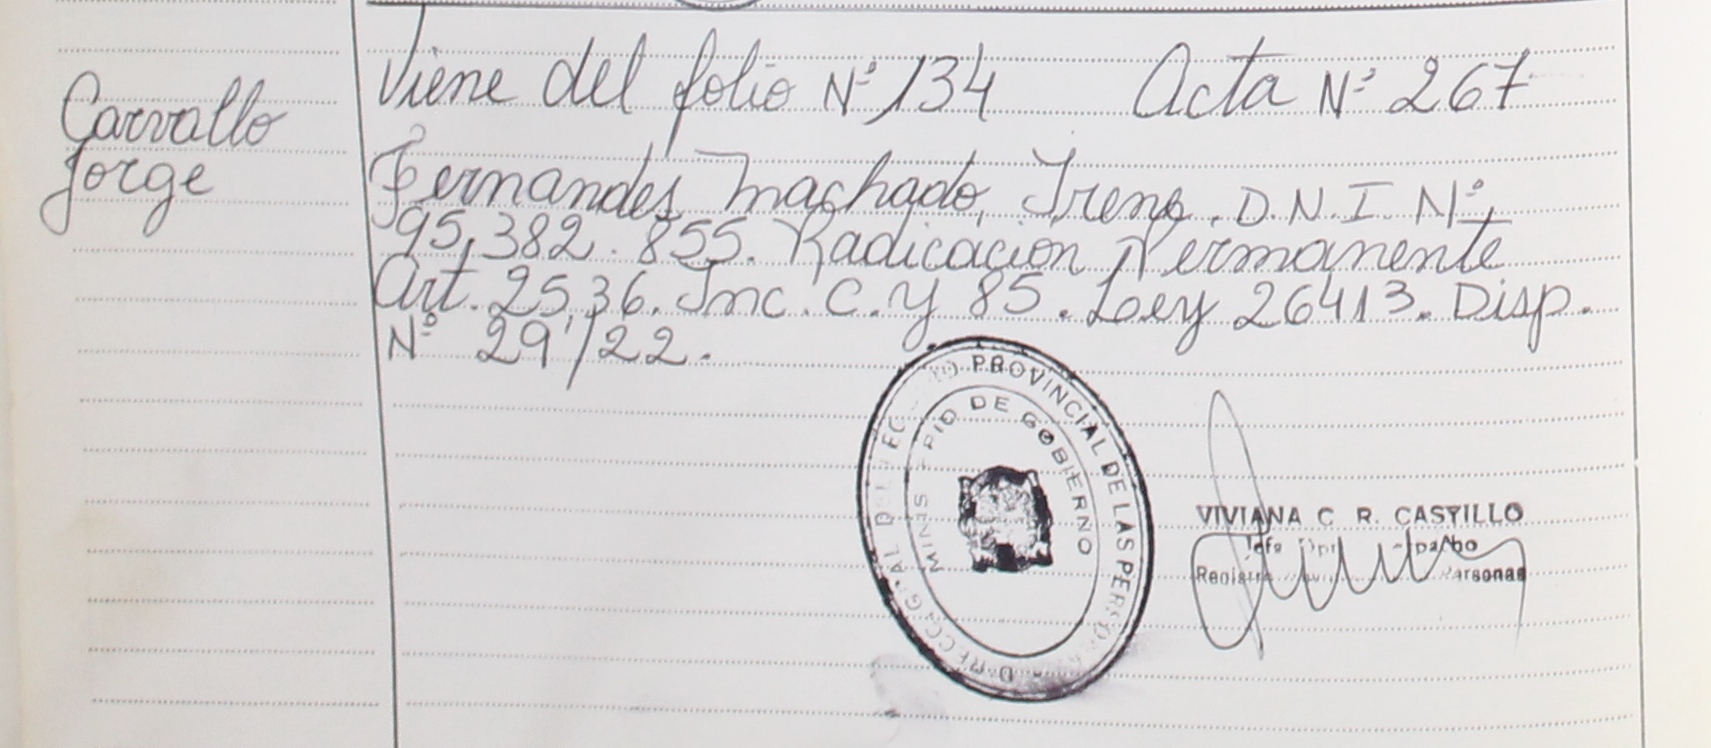 Carvallo
Jorge
Viene del folio Nº 134 Acta Nº 267
Fernandes Machado, Irene. D.N.I. Nº
95.382.855. Radicación Permanente
Art. 2536. Inc. C. y 85. Ley 26413. Disp.
Nº 29/22.
PROVINCIAL DE LAS PERSONAS
MINISTERIO DE GOBIERNO
VIVIANA C R. CASTILLO
Personas